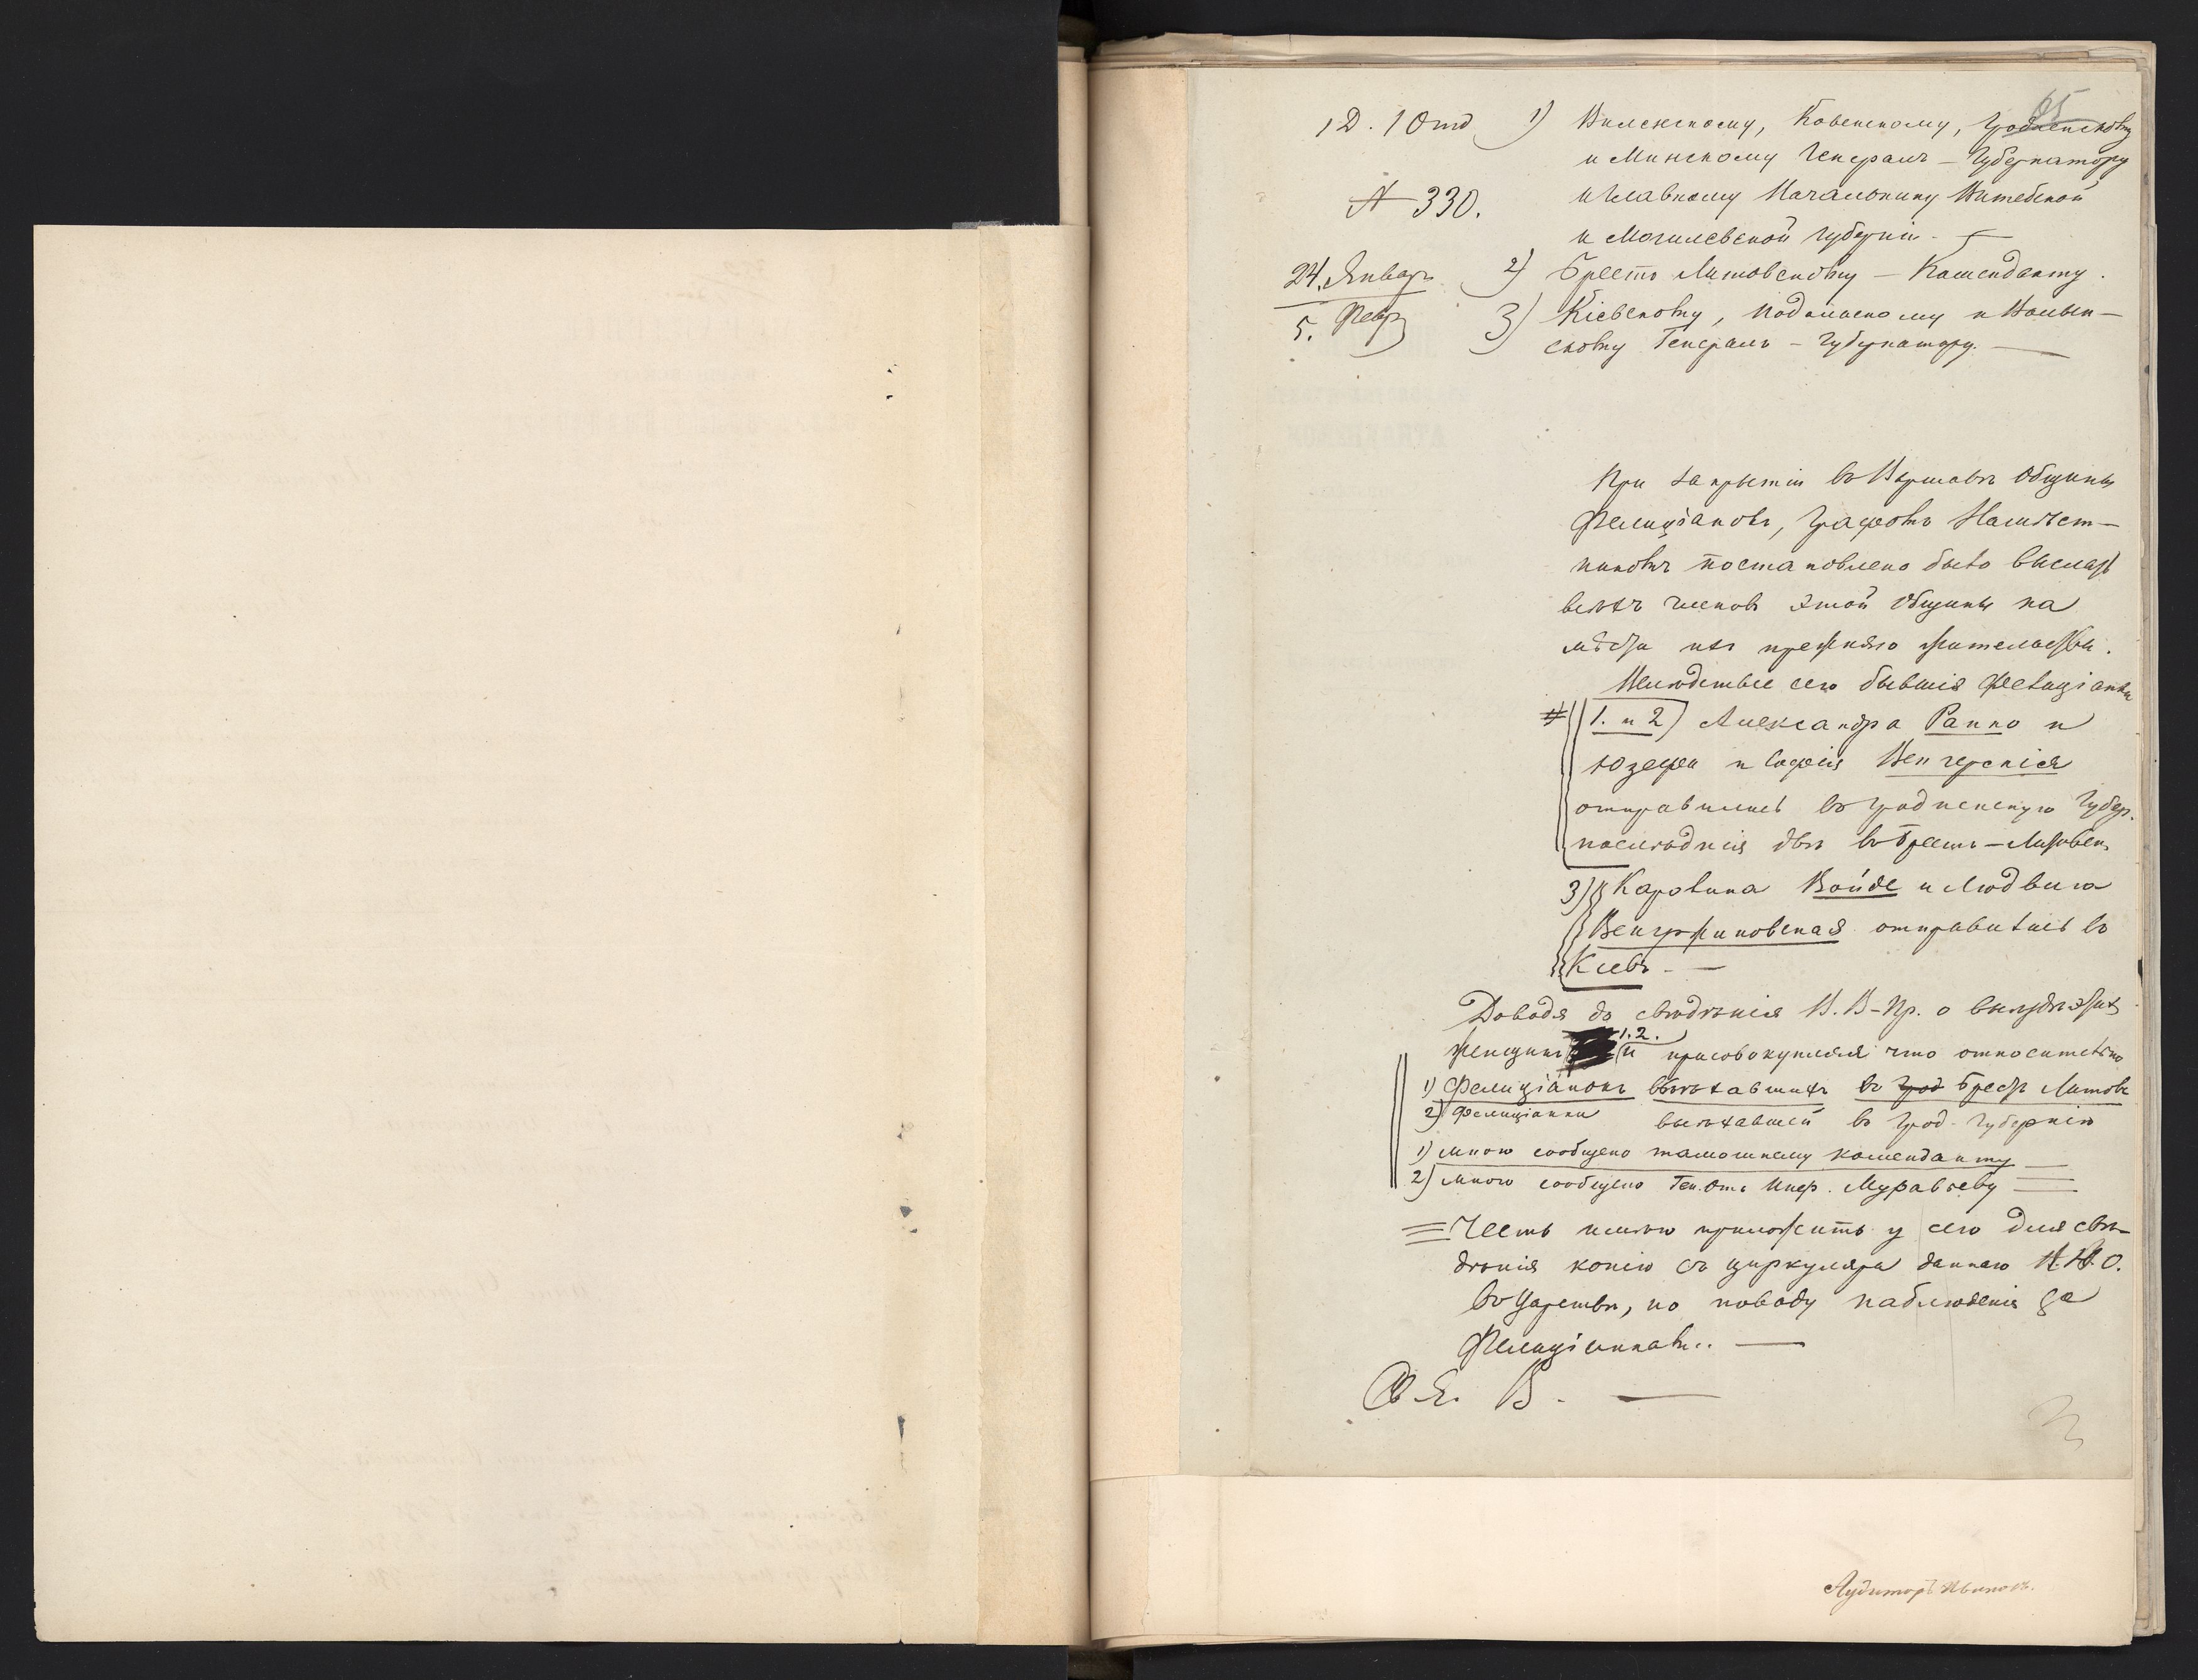 65
1 Д. 1 Отд
№ 330.
24. Январ
5. Февр
1) Виленскому, Ковенскому, Гродненскому
и Минскому Генералъ-Губернатору
и Главному Начальнику Витебской
и Могилевской губерніи. —
2) Брестъ Литовскому — Коменданту.
3) Кіевскому, Подольскому и Волын-
скому Генералъ-Губернатору. —
При закрытіи въ Варшавѣ Общины
Фелиціановъ, Графомъ Намѣст-
никомъ постановлено было выслать
всѣхъ членовъ этой Общины на
мѣста ихъ прежняго жительства.
Вслѣдствіе сего бывшія Фелиціанки
1. и 2) Александра Ранко и
Юзефа и Софія Венгерскія
отправились въ Гродненскую Губер.
послѣднія двѣ въ Брестъ-Литовск.
3) Каролина Войде и Людвига
Венгржиновская отправились въ
Кіевъ. —
Доводя до свѣдѣнія В. В-Пр. о выѣздѣ этихъ
женщинъ 1.2. и присовокупляя что относительно
1) Фелиціанокъ выѣхавшихъ въ Грод Брестъ Литовс
2) Фелиціанки выѣхавшей въ Грод. Губернію
1) мною сообщено тамошнему коменданту —
2) мною сообщено Ген. отъ Инф. Муравьеву —
Честь имѣю приложить у сего для свѣ-
дѣнія копію съ циркуляра даннаго В. Н. О.
въ Царствѣ, по поводу наблюденія за
Фелиціанками. —
В.
Аудиторъ Ивановъ.